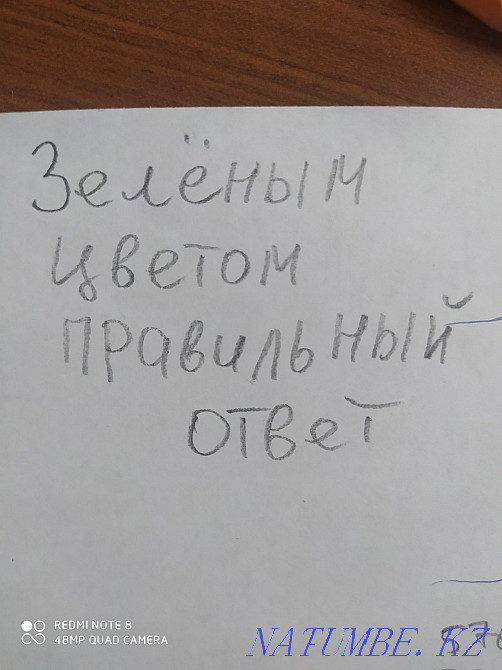 Зелёным
цветом
правильный
ответ
REDMI NOTE 8
48MP QUAD CAMERA
NATUMBE.KZ